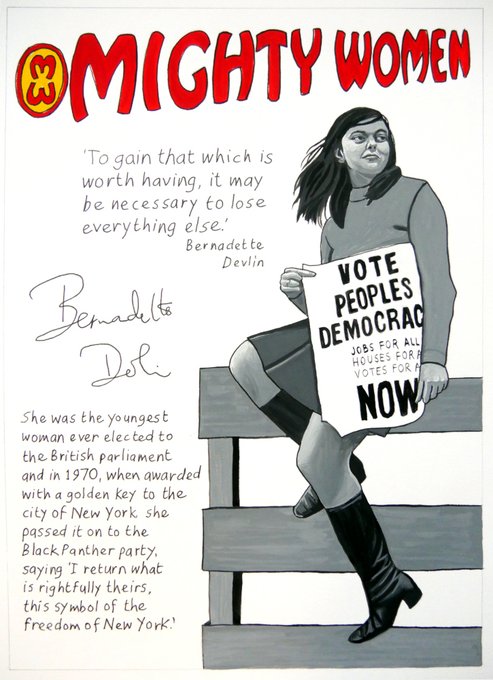 MW MIGHTY WOMEN
'To gain that which is
worth having, it may
be necessary to lose
everything else.'
Bernadette
Devlin
Bernadette
Devlin
VOTE
PEOPLES
DEMOCRAC
JOBS FOR ALL
HOUSES FOR A
VOTES FOR A
NOW
She was the youngest
woman ever elected to
the British parliament
and in 1970, when awarded
with a golden key to the
city of New York she
passed it on to the
Black Panther party,
saying 'I return what
is rightfully theirs,
this symbol of the
freedom of New York.'